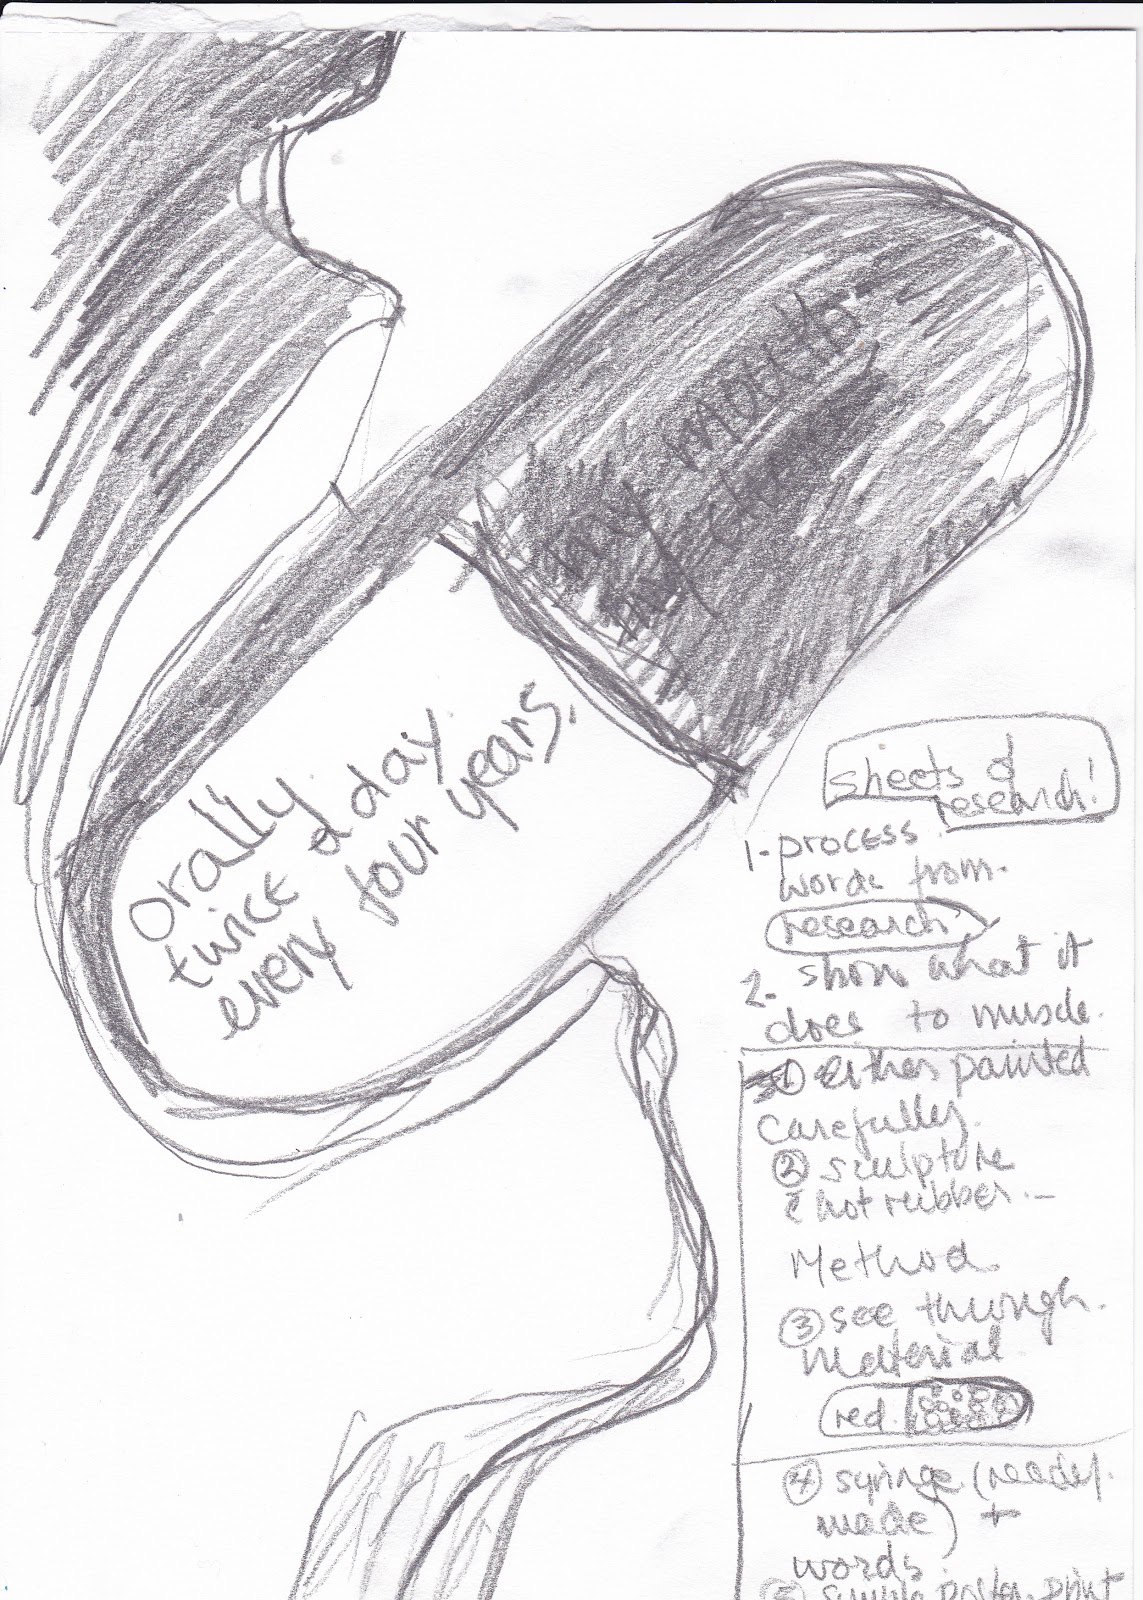 my mouth,
my
orally
twice a day.
every four years.
sheets &
research!
1. process
words from.
research
2. show what it
does to muscle.
① Either painted
carefully.
② sculpture
& hot rubber. –
Method
③ see through.
material
red.
④ syringe (ready.
made) +
words
print